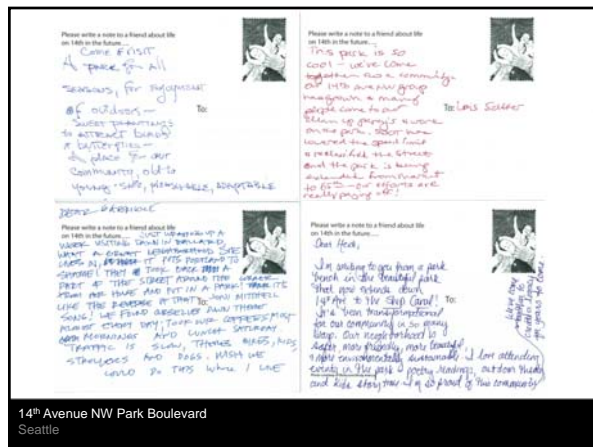 Please write a note to a friend about life
on 14th in the future....
COME VISIT
A PARK for ALL
SEASONS, for enjoyment
of outdoors –
SWEET PLANTINGS
to ATTRACT birds
& butterflies –
A place for our
community, old to
young - SAFE, ADAPTABLE
To:
Please write a note to a friend about life
on 14th in the future....
This park is so
cool – we've come
together as a community.
our 14th Ave NW group
has grown & many
people come to our
clean up parties & work
on the park. SDOT has
lowered the speed limit
& the street
and the park is being
extended from market
to 65th – our efforts are
really paying off!
To: Lois
Please write a note to a friend about life
on 14th in the future....
DEAR
JUST WRAPPING UP A
WEEK VISITING DAWN IN BALLARD.
WHAT A GREAT NEIGHBORHOOD SHE
LIVES IN, IT PUTS PORTLAND TO
SHAME! THEY TOOK BACK A
PART OF THE STREET AROUND THE CORNER
FROM HER HOUSE AND PUT IN A PARK! IT'S
LIKE THE REVERSE OF THAT JONI MITCHELL
SONG! WE FOUND OURSELVES DOWN THERE
ALMOST EVERY DAY, TOOK OUR COFFEES MOST
MORNINGS AND LUNCH SATURDAY.
TRAFFIC IS SLOW, THERE'S BIKES, KIDS,
STROLLERS AND DOGS. WISH WE
COULD DO THIS WHERE I LIVE
To:
Please write a note to a friend about life
on 14th in the future....
Dear Heidi,
I'm writing to you from a park
bench in the beautiful park
that now extends down
14th Ave to the Ship Canal!
It's been transformational
for our community in so many
ways. Our neighborhood is
safer, more friendly, more beautiful,
more environmentally sustainable. I love attending
events in the park - poetry readings, outdoor theater
and kids story time. I'm so proud of this community
To:
We've come
14th Avenue NW Park Boulevard
Seattle